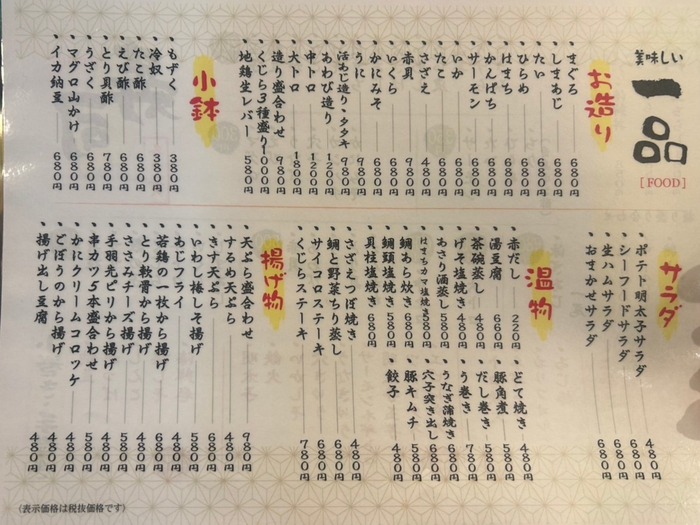 美味しい
一品
[FOOD]
お造り
・まぐろ 680円
・しまあじ 680円
・たい 680円
・ひらめ 680円
・はまち 680円
・かんぱち 680円
・サーモン 680円
・いか 680円
・たこ 680円
・さざえ 480円
・赤貝 980円
・いくら 680円
・かにみそ 680円
・うに 980円
・活あじ造り・タタキ 980円
・あわび造り 1200円
・中トロ 1200円
・大トロ 1800円
・造り盛合わせ 980円
・くじら3種盛り 1000円
・地鶏生レバー 580円
小鉢
・もずく 380円
・冷奴 380円
・たこ酢 680円
・えび酢 680円
・とり貝酢 780円
・うざく 680円
・マグロ山かけ 680円
・イカ納豆 680円
サラダ
・ポテト明太子サラダ 480円
・シーフードサラダ 680円
・生ハムサラダ 680円
・おまかせサラダ 680円
温物
・赤だし 220円
・湯豆腐 660円
・茶碗蒸し 480円
・げそ塩焼き 480円
・あさり酒蒸し 580円
・はまちカマ塩焼き 580円
・鯛あら炊き 680円
・鯛頭塩焼き 580円
・貝柱塩焼き 680円
・どて焼き 480円
・豚角煮 580円
・だし巻き 580円
・う巻き 780円
・うなぎ蒲焼き 680円
・穴子突き出し 680円
・豚キムチ 580円
・餃子 480円
・さざえつぼ焼き 480円
・鯛と野菜ちり蒸し 680円
・サイコロステーキ 680円
・くじらステーキ 780円
揚げ物
・天ぷら盛合わせ 980円
・するめ天ぷら 480円
・きす天ぷら 680円
・いわし棒しそ揚げ 480円
・あじフライ 480円
・若鶏の一枚から揚げ 680円
・とり軟骨から揚げ 480円
・ささみチーズ揚げ 580円
・手羽先ピリから揚げ 480円
・串カツ5本盛合わせ 580円
・かにクリームコロッケ 480円
・ごぼうのから揚げ 480円
・揚げ出し豆腐 480円
(表示価格は税抜価格です)